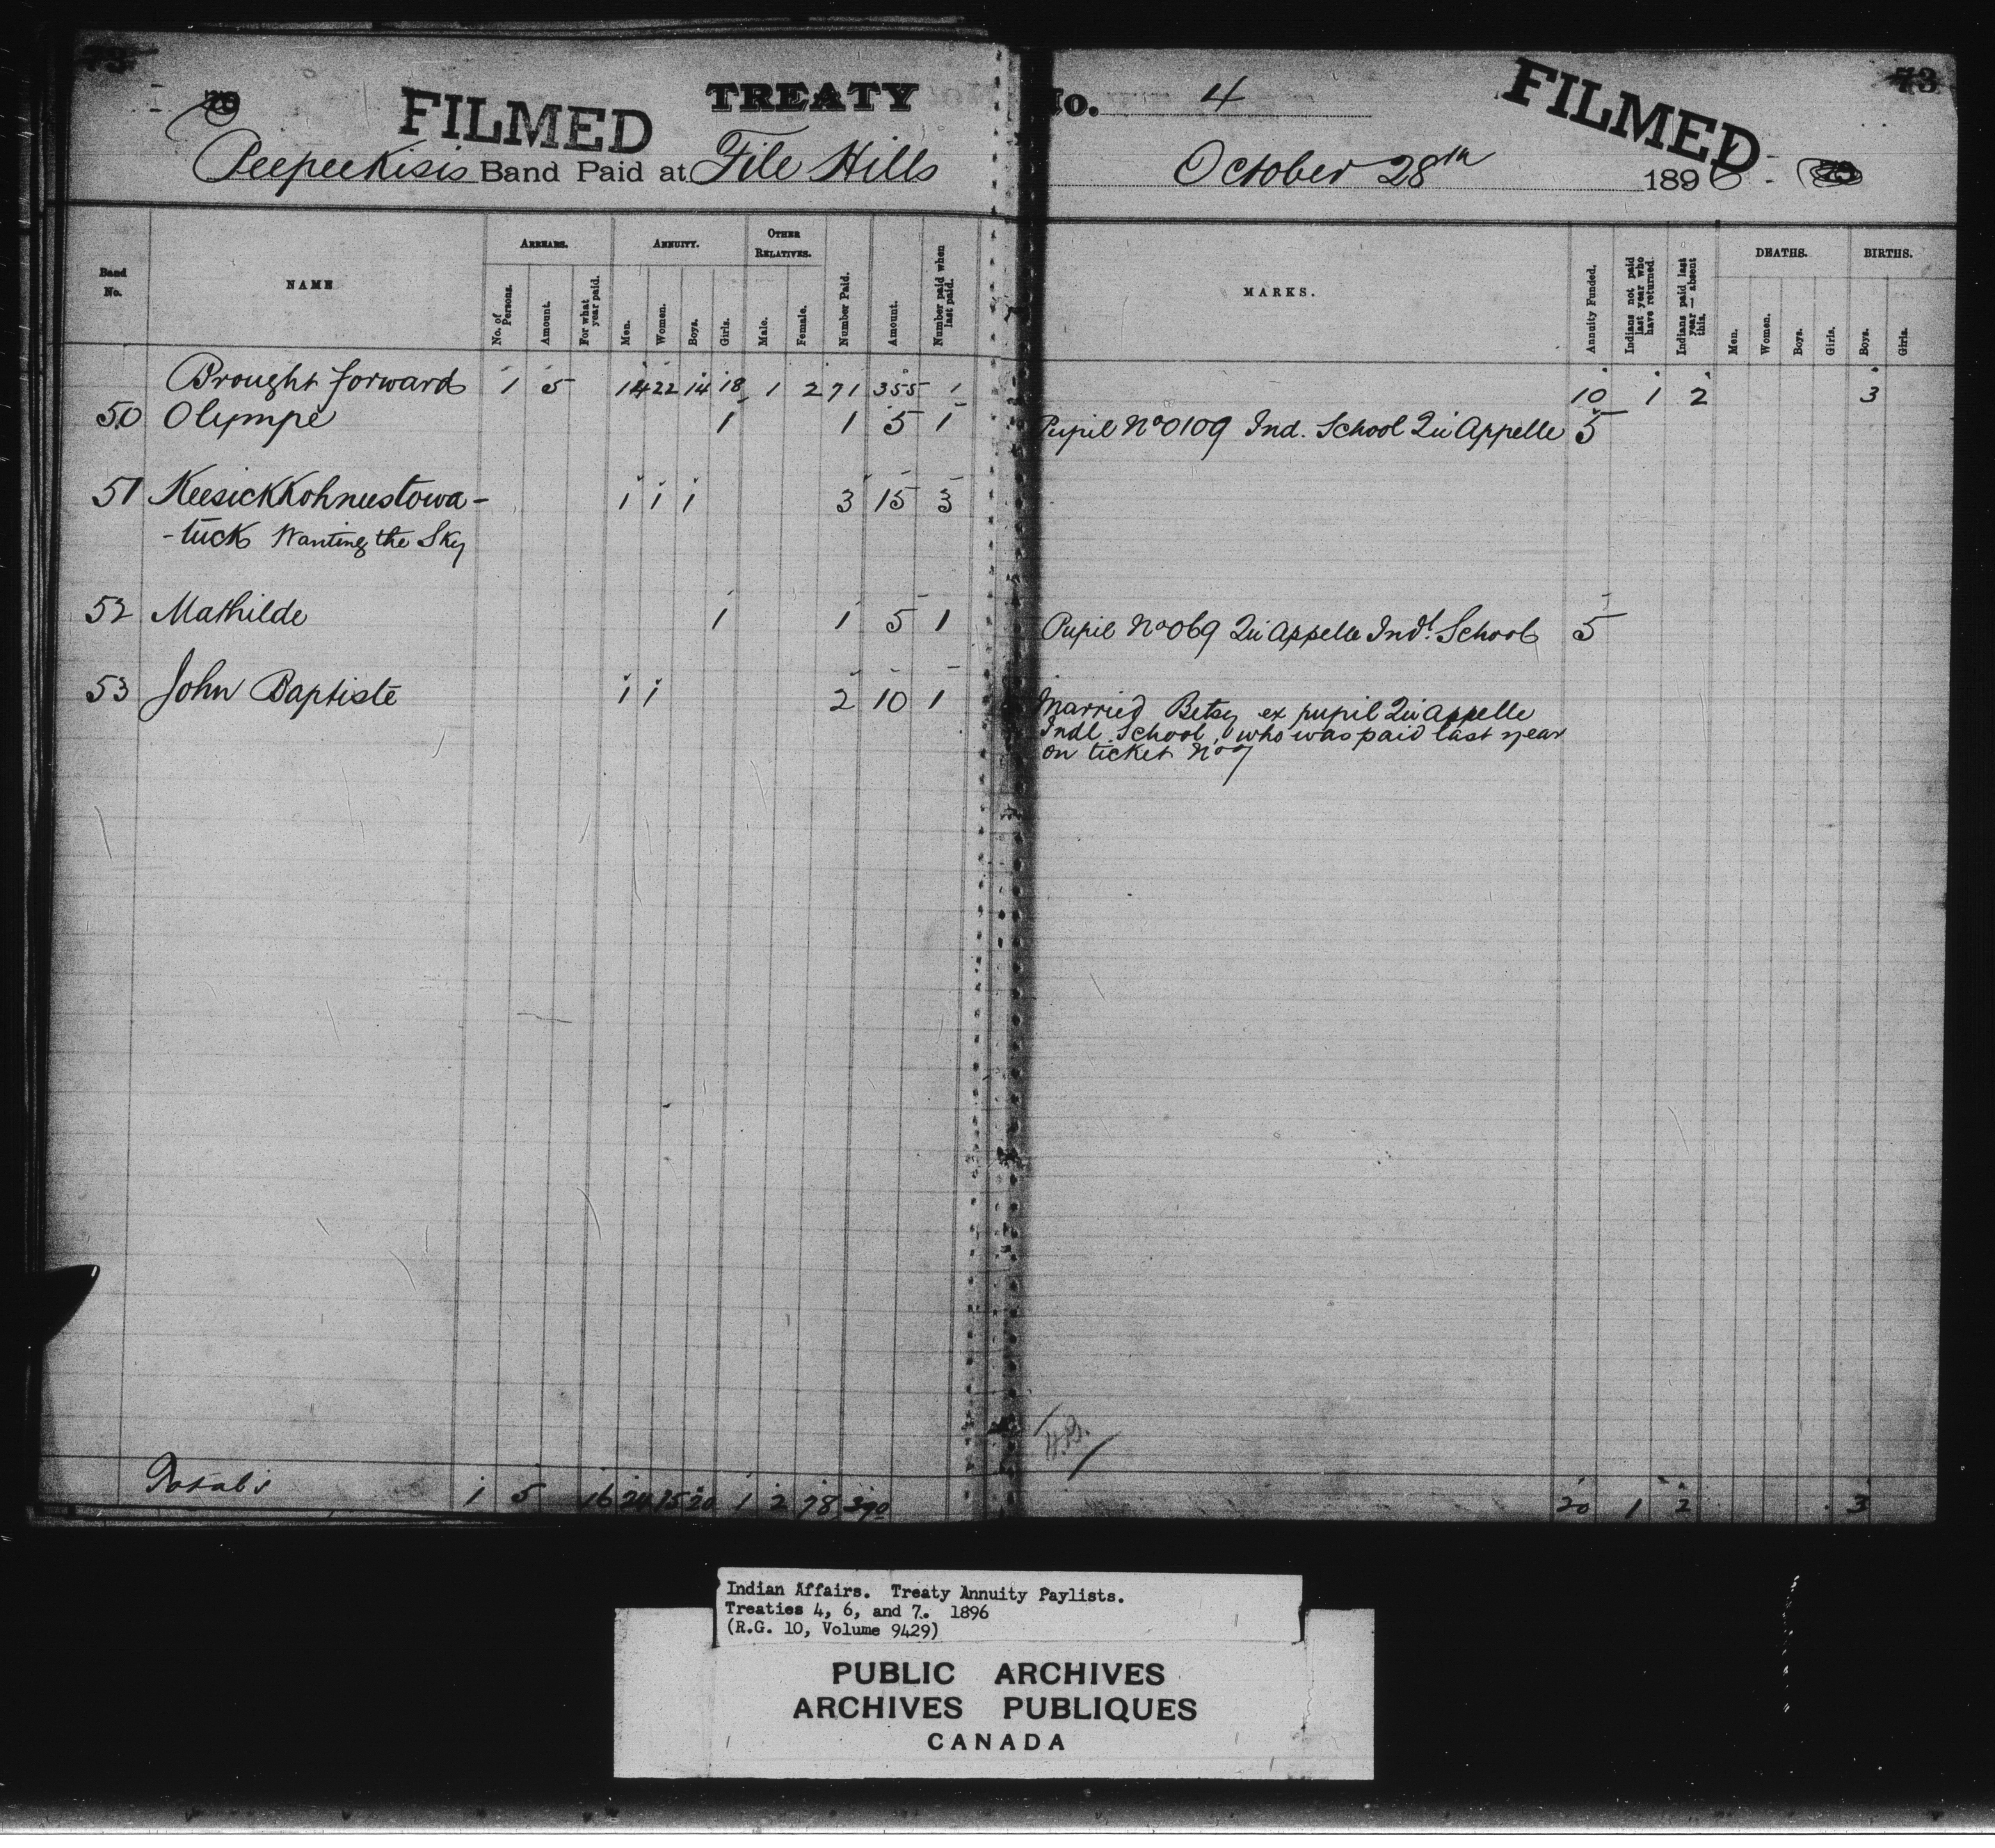 73
FILMED
TREATY
No. 4
FILMED
73
Peepeekisis Band Paid at File Hills
October 28th 1896
Band No.
NAME
ARREARS.
No. of Persons.
Amount.
For what year paid.
ANNUITY.
Men.
Women.
Boys.
Girls.
OTHER RELATIVES.
Male.
Female.
Number Paid.
Amount.
Number paid when last paid.
MARKS.
Annuity Funded.
Indians not paid last year who have returned.
Indians paid last year — absent this.
DEATHS.
Men.
Women.
Boys.
Girls.
BIRTHS.
Boys.
Girls.
Brought forward 1 5 14 22 14 18 1 2 71 355 1 10 1 2 3
50 Olympe 1 1 5 1 Pupil No 0109 Ind. School Qu'Appelle 5
51 Keesickkohnustowa- 1 1 1 3 15 3
-tuck Wanting the Sky
52 Mathilde 1 1 5 1 Pupil No 069 Qu'Appelle Indl School 5
53 John Baptiste 1 1 2 10 1 Married Betsy ex pupil Qu'Appelle
Indl School, who was paid last year
on ticket No 7
Totals 1 5 16 24 15 20 1 2 78 390 20 1 2 3
Indian Affairs. Treaty Annuity Paylists.
Treaties 4, 6, and 7. 1896
(R.G. 10, Volume 9429)
PUBLIC ARCHIVES
ARCHIVES PUBLIQUES
CANADA